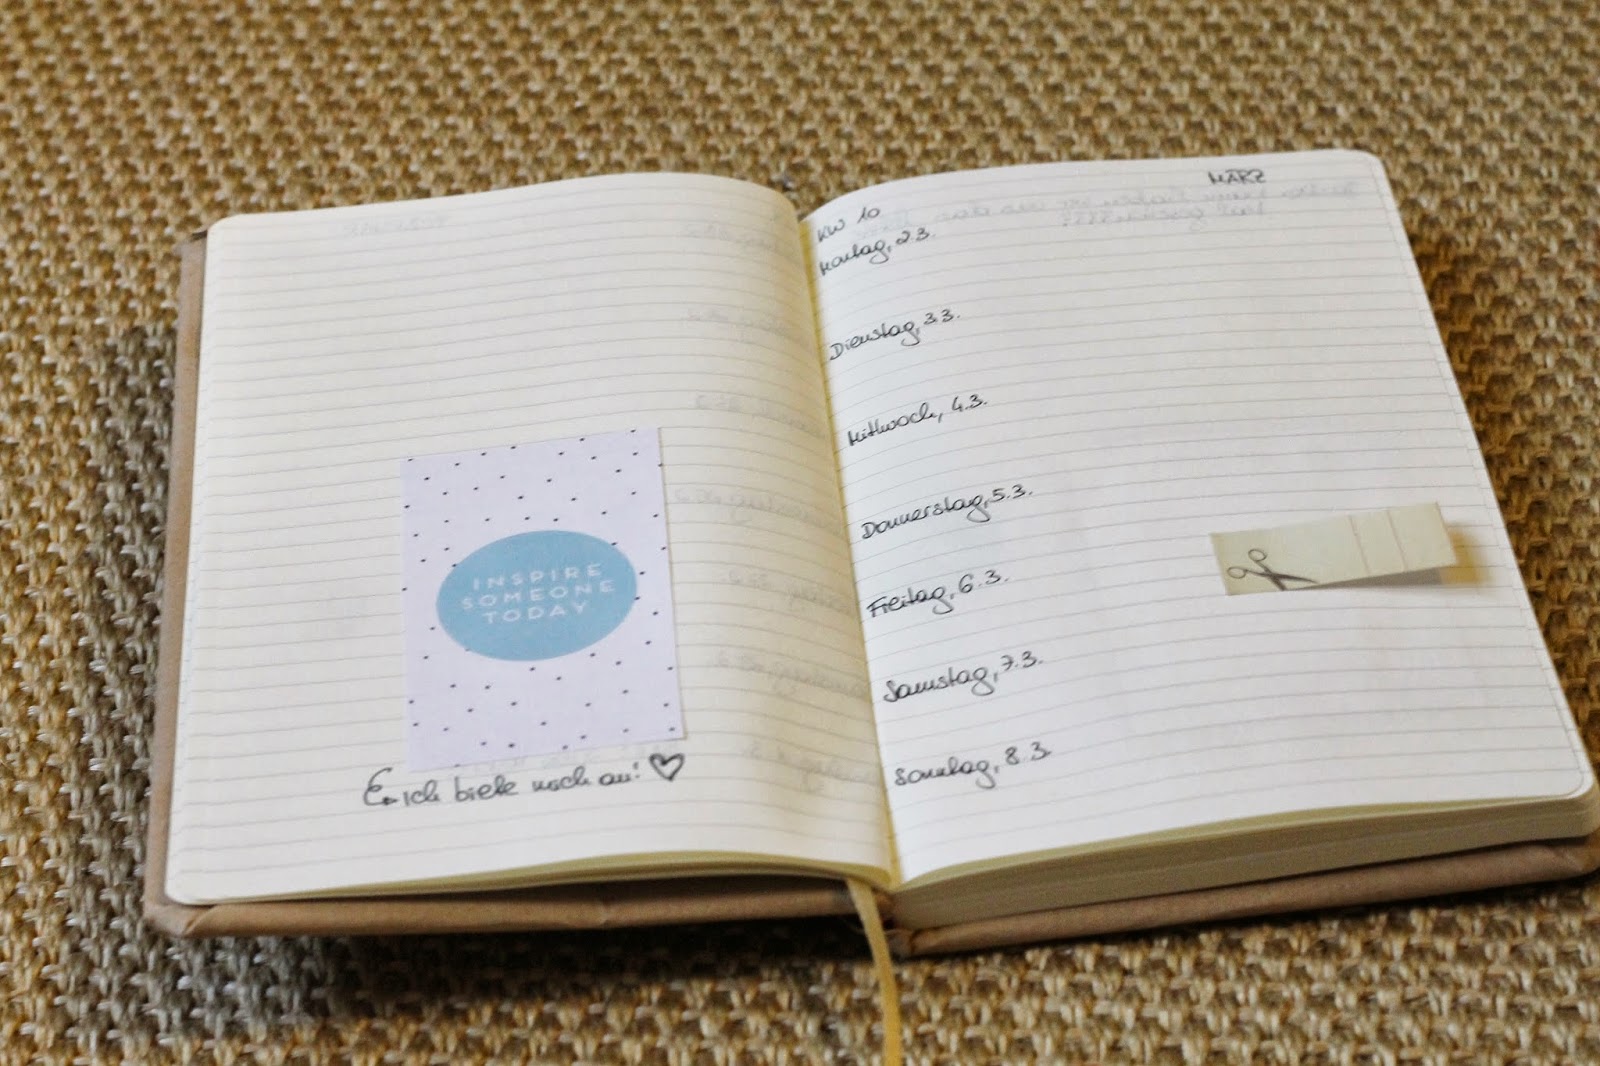 INSPIRE
SOMEONE
TODAY
Ich biete mich an! ♡
MÄRZ
KW 10
Montag, 2.3.
Dienstag, 3.3.
Mittwoch, 4.3.
Donnerstag, 5.3.
Freitag, 6.3.
Samstag, 7.3.
Sonntag, 8.3.